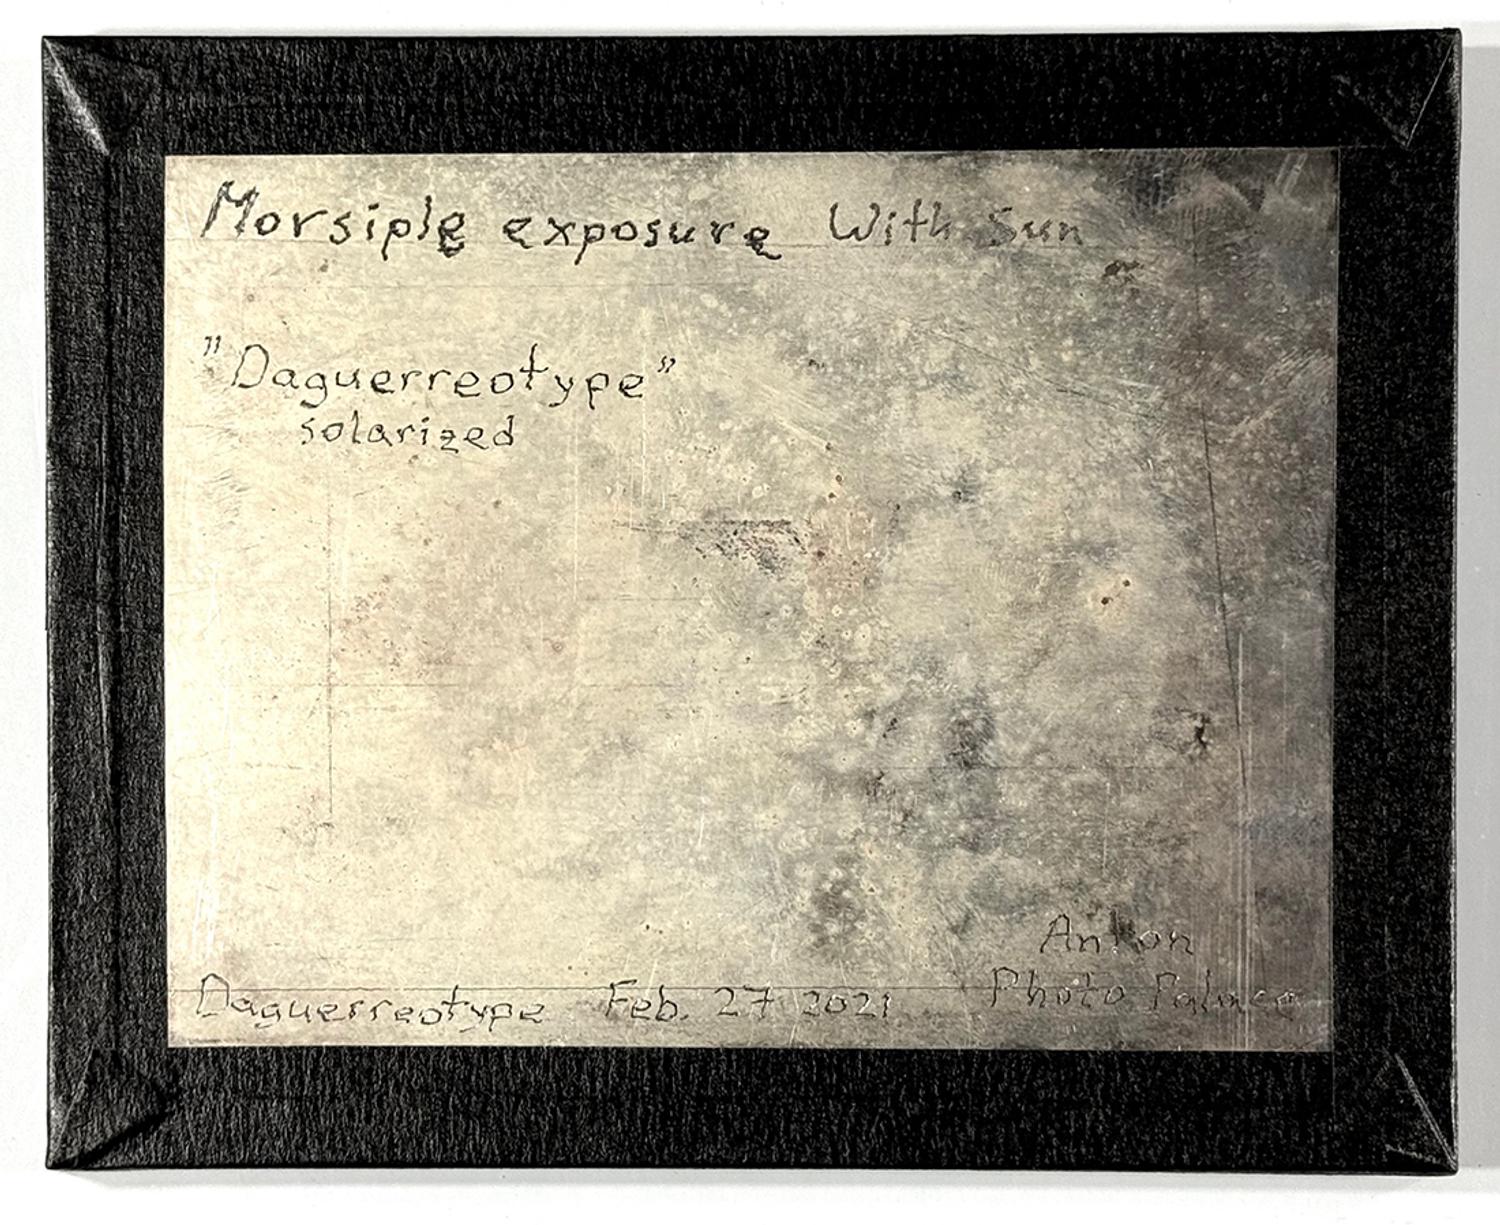 Morsiple exposure With Sun
"Daguerreotype"
solarized
Anton
Daguerreotype Feb. 27 2021 Photo Palace